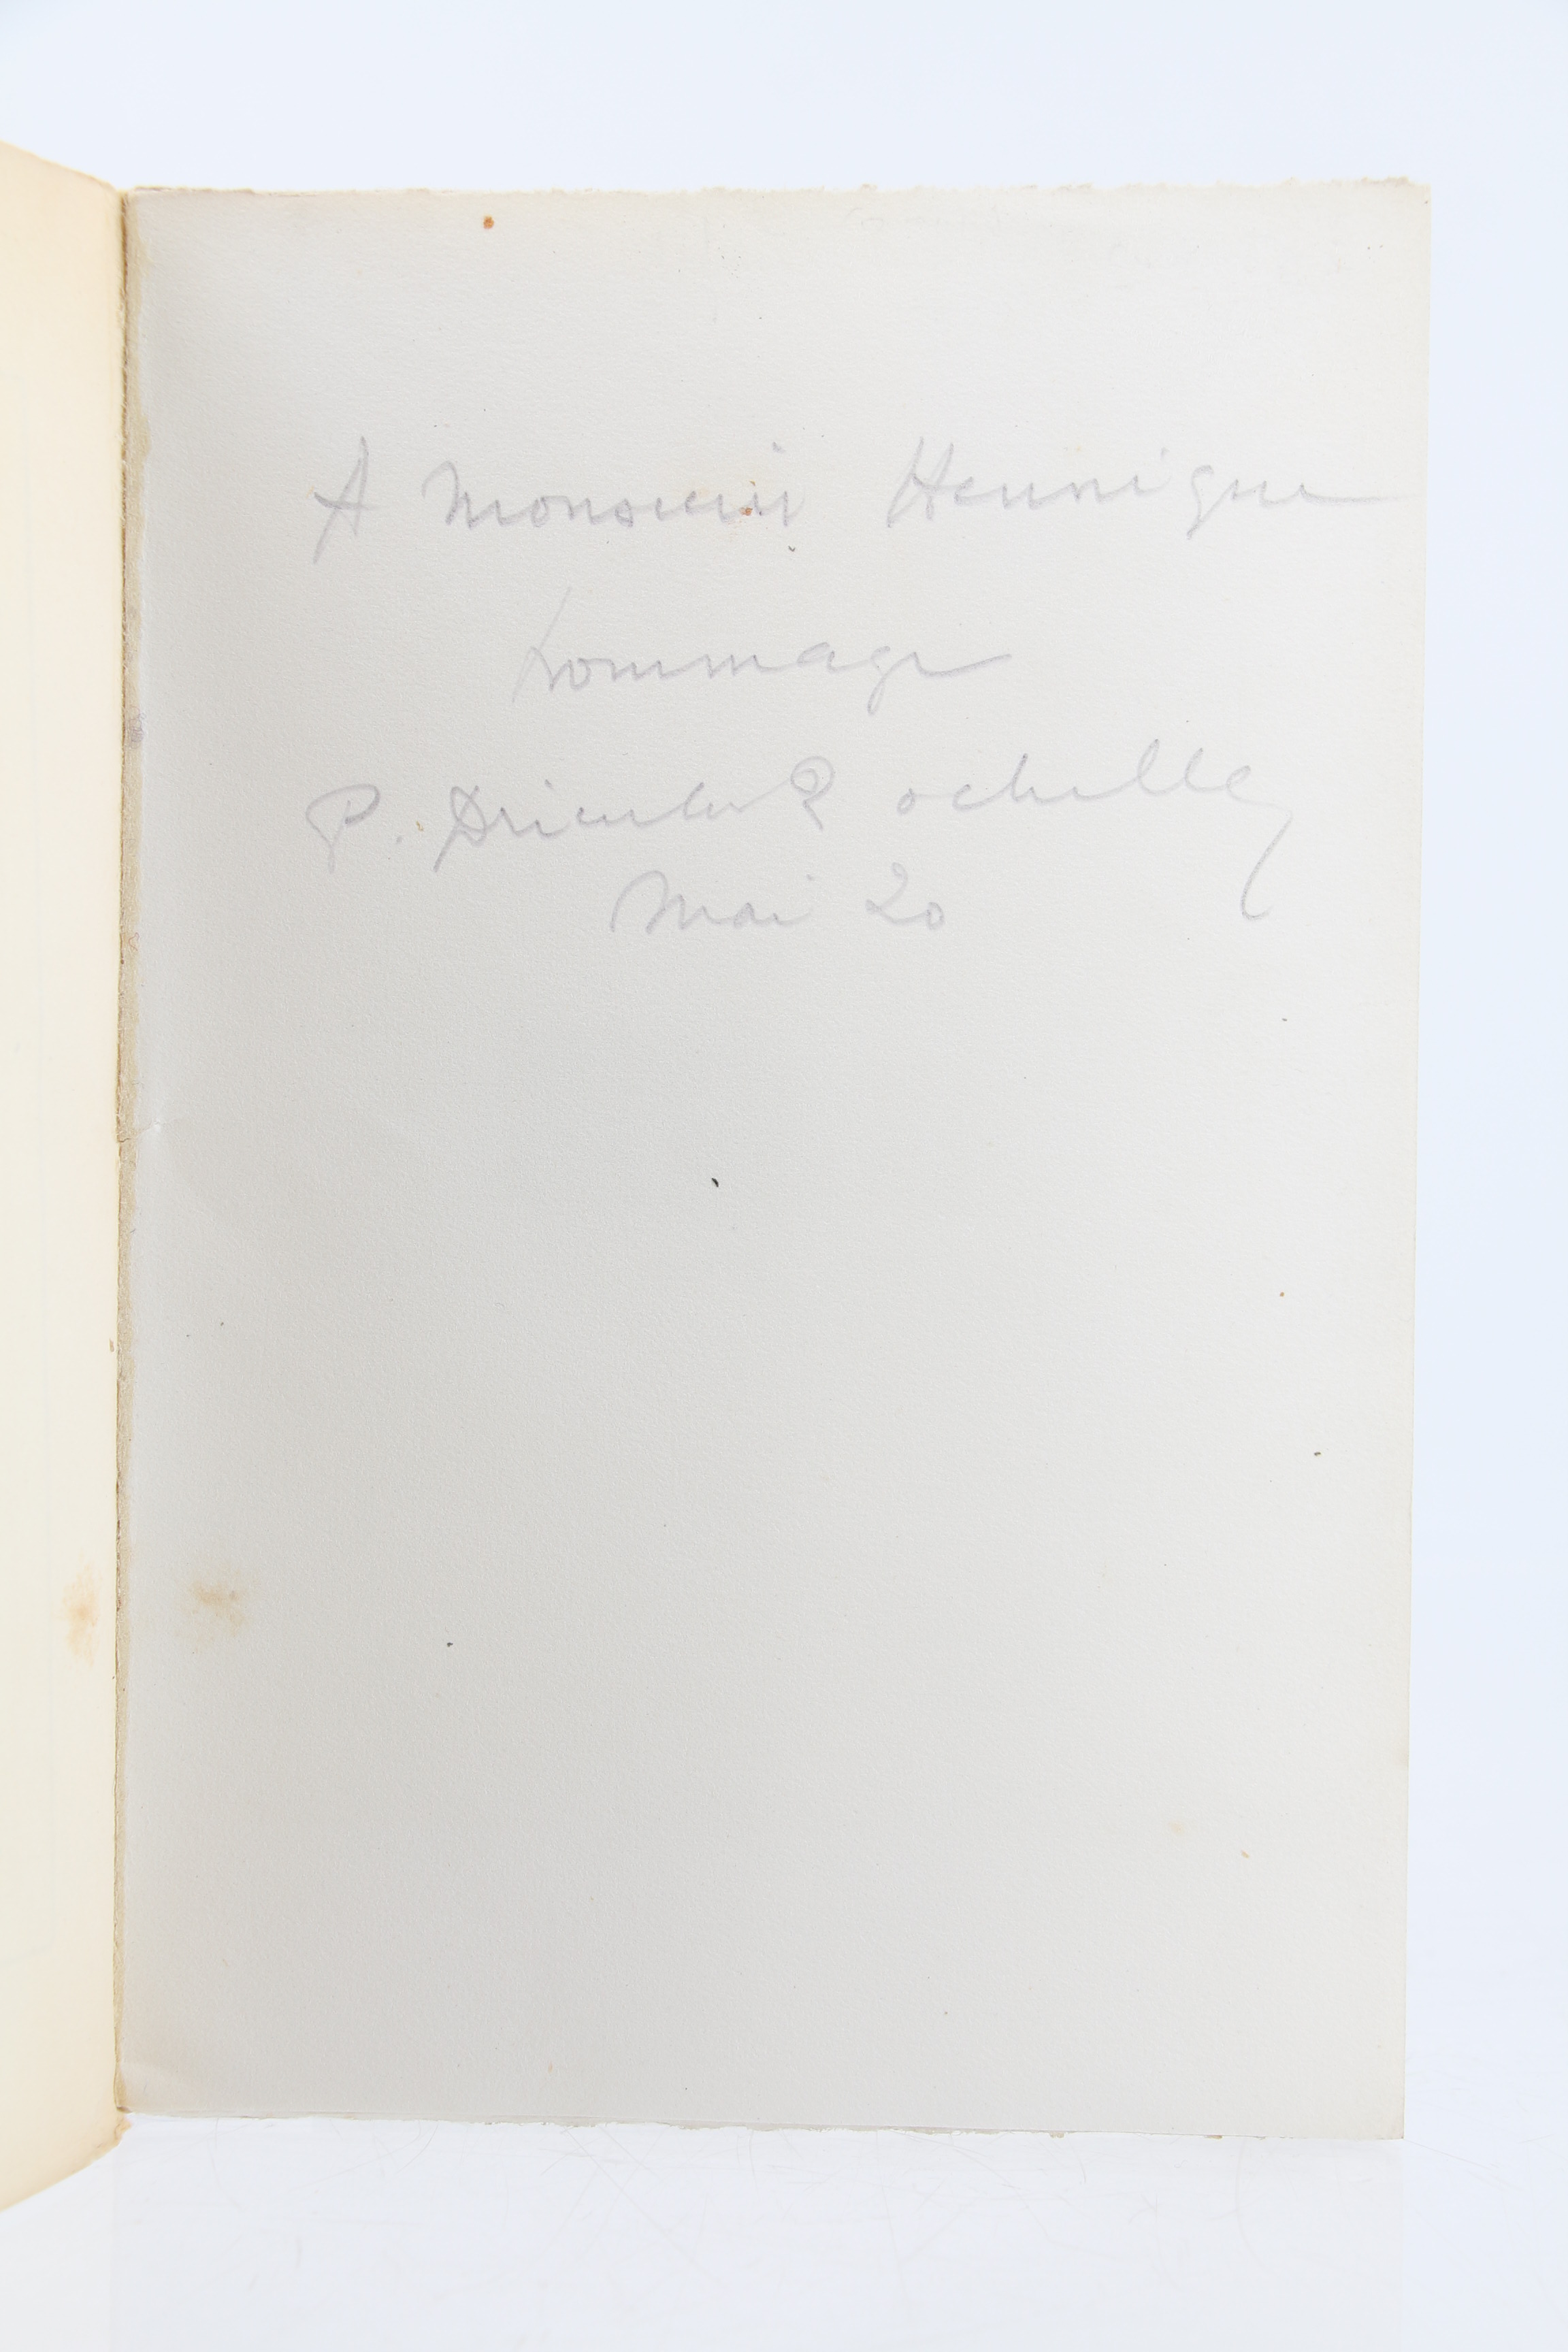 A Monsieur Hennique
hommage
P. Drieu la Rochelle
Mai 20